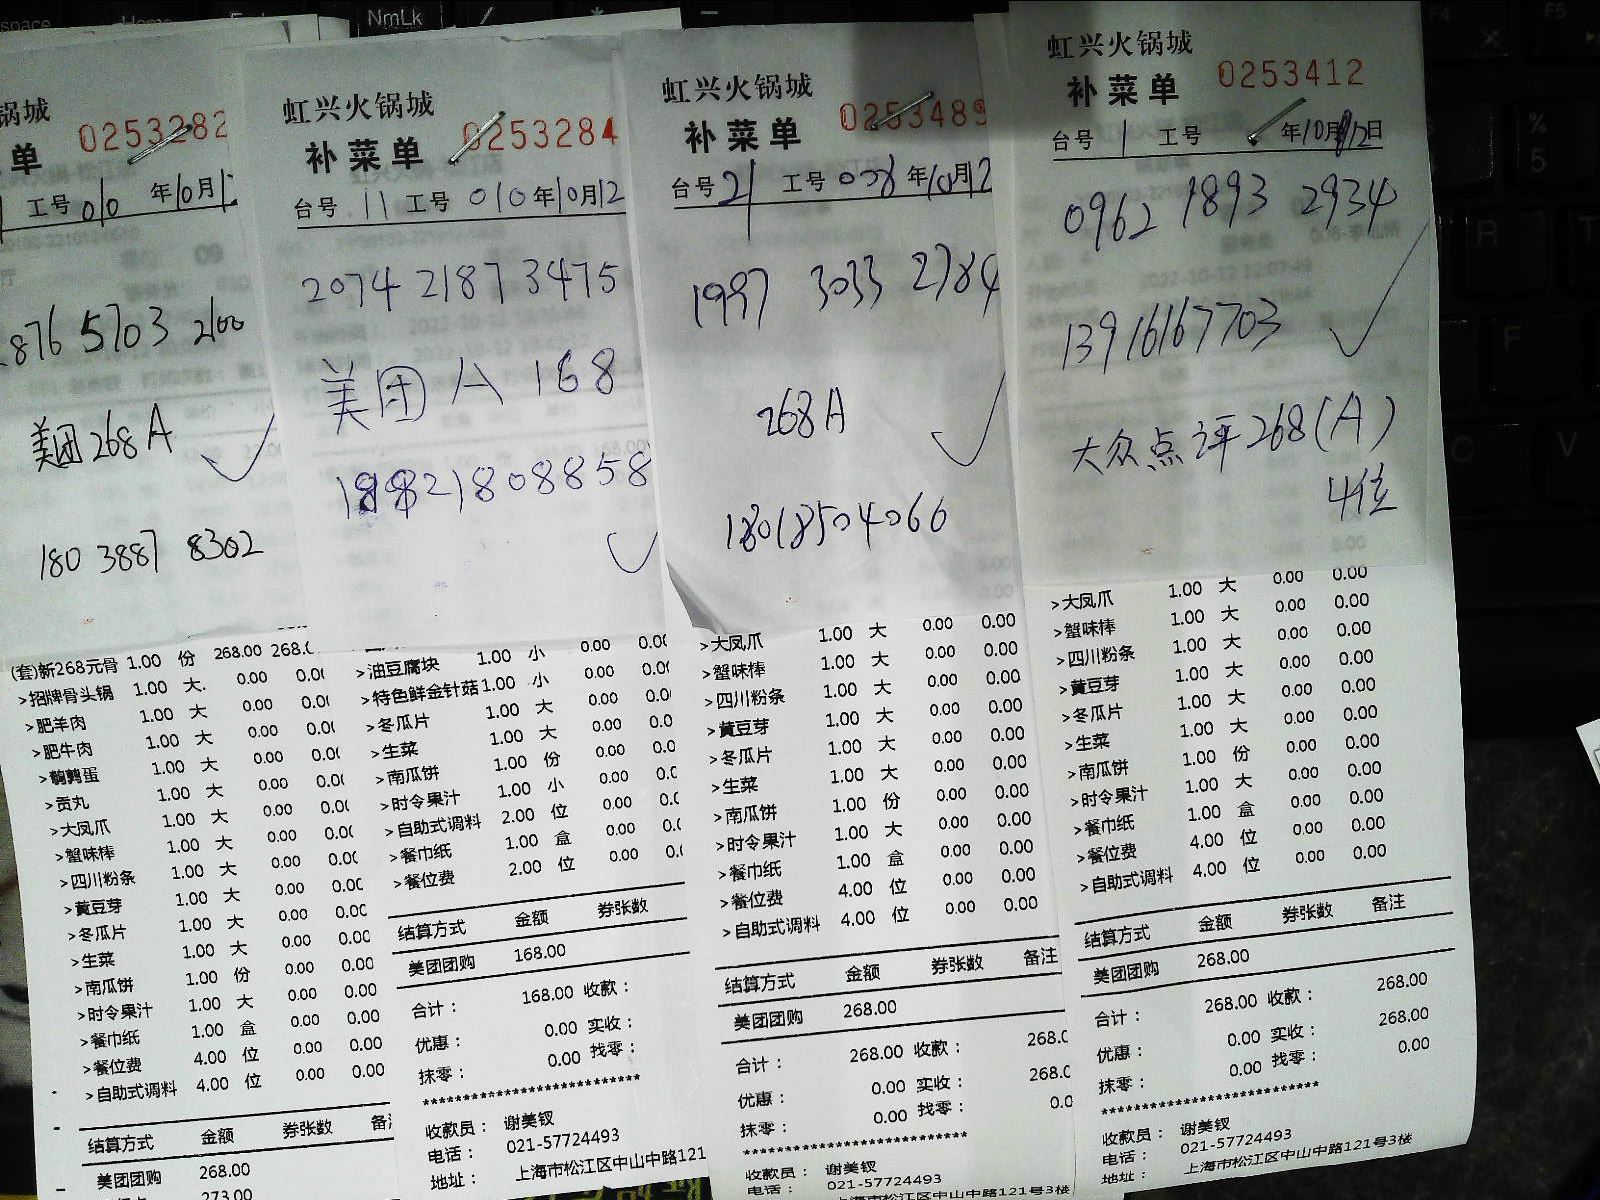 锅城
单 0253282
工号 010 年10月12
8765703 2100
美团268A
180 3887 8302
(套)新268元骨 1.00 份 268.00 268.0
>招牌骨头锅 1.00 大 0.00 0.00
>肥羊肉 1.00 大 0.00 0.00
>肥牛肉 1.00 大 0.00 0.00
>鹌鹑蛋 1.00 大 0.00 0.00
>贡丸 1.00 大 0.00 0.00
>大凤爪 1.00 大 0.00 0.00
>蟹味棒 1.00 大 0.00 0.00
>四川粉条 1.00 大 0.00 0.00
>黄豆芽 1.00 大 0.00 0.00
>冬瓜片 1.00 大 0.00 0.00
>生菜 1.00 大 0.00 0.00
>南瓜饼 1.00 份 0.00 0.00
>时令果汁 1.00 大 0.00 0.00
>餐巾纸 1.00 盒 0.00 0.00
>餐位费 4.00 位 0.00 0.00
>自助式调料 4.00 位 0.00 0.00
结算方式 金额 券张数
美团团购 268.00
273.00
虹兴火锅城
补菜单 0253284
台号 11 工号 010 年10月12
2074 2187 3475
美团 A 168
18821808858
>油豆腐块 1.00 小 0.00 0.00
>特色鲜金针菇 1.00 小 0.00 0.00
>冬瓜片 1.00 大 0.00 0.0
>生菜 1.00 大 0.00 0.0
>南瓜饼 1.00 份 0.00 0.0
>时令果汁 1.00 小 0.00 0.0
>自助式调料 2.00 位 0.00 0.0
>餐巾纸 1.00 盒 0.00 0.0
>餐位费 2.00 位 0.00 0.0
结算方式 金额 券张数
美团团购 168.00
合计： 168.00 收款：
优惠： 0.00 实收：
抹零： 0.00 找零：
******************************
收款员： 谢美钗
电话： 021-57724493
地址： 上海市松江区中山中路121
虹兴火锅城
补菜单 0253489
台号 21 工号 008 年10月12
1997 3033 2784
268A
18018504066
>大凤爪 1.00 大 0.00 0.00
>蟹味棒 1.00 大 0.00 0.00
>四川粉条 1.00 大 0.00 0.00
>黄豆芽 1.00 大 0.00 0.00
>冬瓜片 1.00 大 0.00 0.00
>生菜 1.00 大 0.00 0.00
>南瓜饼 1.00 份 0.00 0.00
>时令果汁 1.00 大 0.00 0.00
>餐巾纸 1.00 盒 0.00 0.00
>餐位费 4.00 位 0.00 0.00
>自助式调料 4.00 位 0.00 0.00
结算方式 金额 券张数 备注
美团团购 268.00
合计： 268.00 收款： 268.0
优惠： 0.00 实收： 268.0
抹零： 0.00 找零： 0.0
******************************
收款员： 谢美钗
电话： 021-57724493
上海市松江区中山中路121号3楼
虹兴火锅城
补菜单 0253412
台号 1 工号 年10月12日
0962 1893 2934
13916167703
大众点评268(A)
4位
>大凤爪 1.00 大 0.00 0.00
>蟹味棒 1.00 大 0.00 0.00
>四川粉条 1.00 大 0.00 0.00
>黄豆芽 1.00 大 0.00 0.00
>冬瓜片 1.00 大 0.00 0.00
>生菜 1.00 大 0.00 0.00
>南瓜饼 1.00 份 0.00 0.00
>时令果汁 1.00 大 0.00 0.00
>餐巾纸 1.00 盒 0.00 0.00
>餐位费 4.00 位 0.00 0.00
>自助式调料 4.00 位 0.00 0.00
结算方式 金额 券张数 备注
美团团购 268.00
合计： 268.00 收款： 268.00
优惠： 0.00 实收： 268.00
抹零： 0.00 找零： 0.00
******************************
收款员： 谢美钗
电话： 021-57724493
地址： 上海市松江区中山中路121号3楼
NmLk